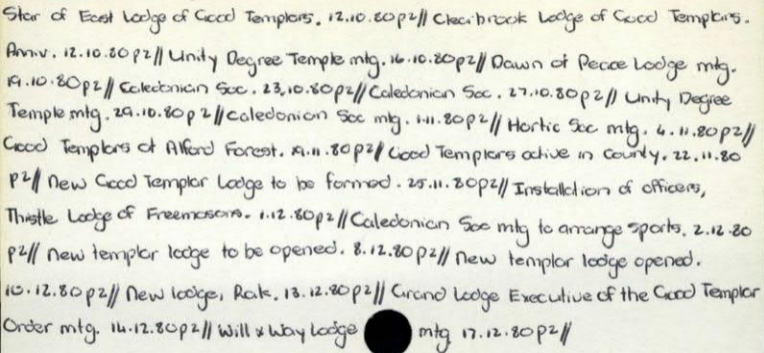 Star of East Lodge of Good Templars. 12.10.80p2// Clearbrook Lodge of Good Templars.
Anniv. 12.10.80p2// Unity Degree Temple mtg. 16.10.80p2// Dawn of Peace Lodge mtg.
19.10.80p2// Caledonian Soc. 23.10.80p2// Caledonian Soc. 27.10.80p2// Unity Degree
Temple mtg. 29.10.80p2// Caledonian Soc mtg. 1.11.80p2// Hortic Soc mtg. 4.11.80p2//
Good Templars at Alford Forest. 19.11.80p2// Good Templars active in County. 22.11.80
p2// New Good Templar Lodge to be formed. 25.11.80p2// Installation of officers,
Thistle Lodge of Freemasons. 1.12.80p2// Caledonian Soc mtg to arrange sports. 2.12.80
p2// New templar lodge to be opened. 8.12.80p2// New templar lodge opened.
10.12.80p2// New lodge, Rak. 13.12.80p2// Grand Lodge Executive of the Good Templar
Order mtg. 14.12.80p2// Will & Way Lodge mtg 17.12.80p2//